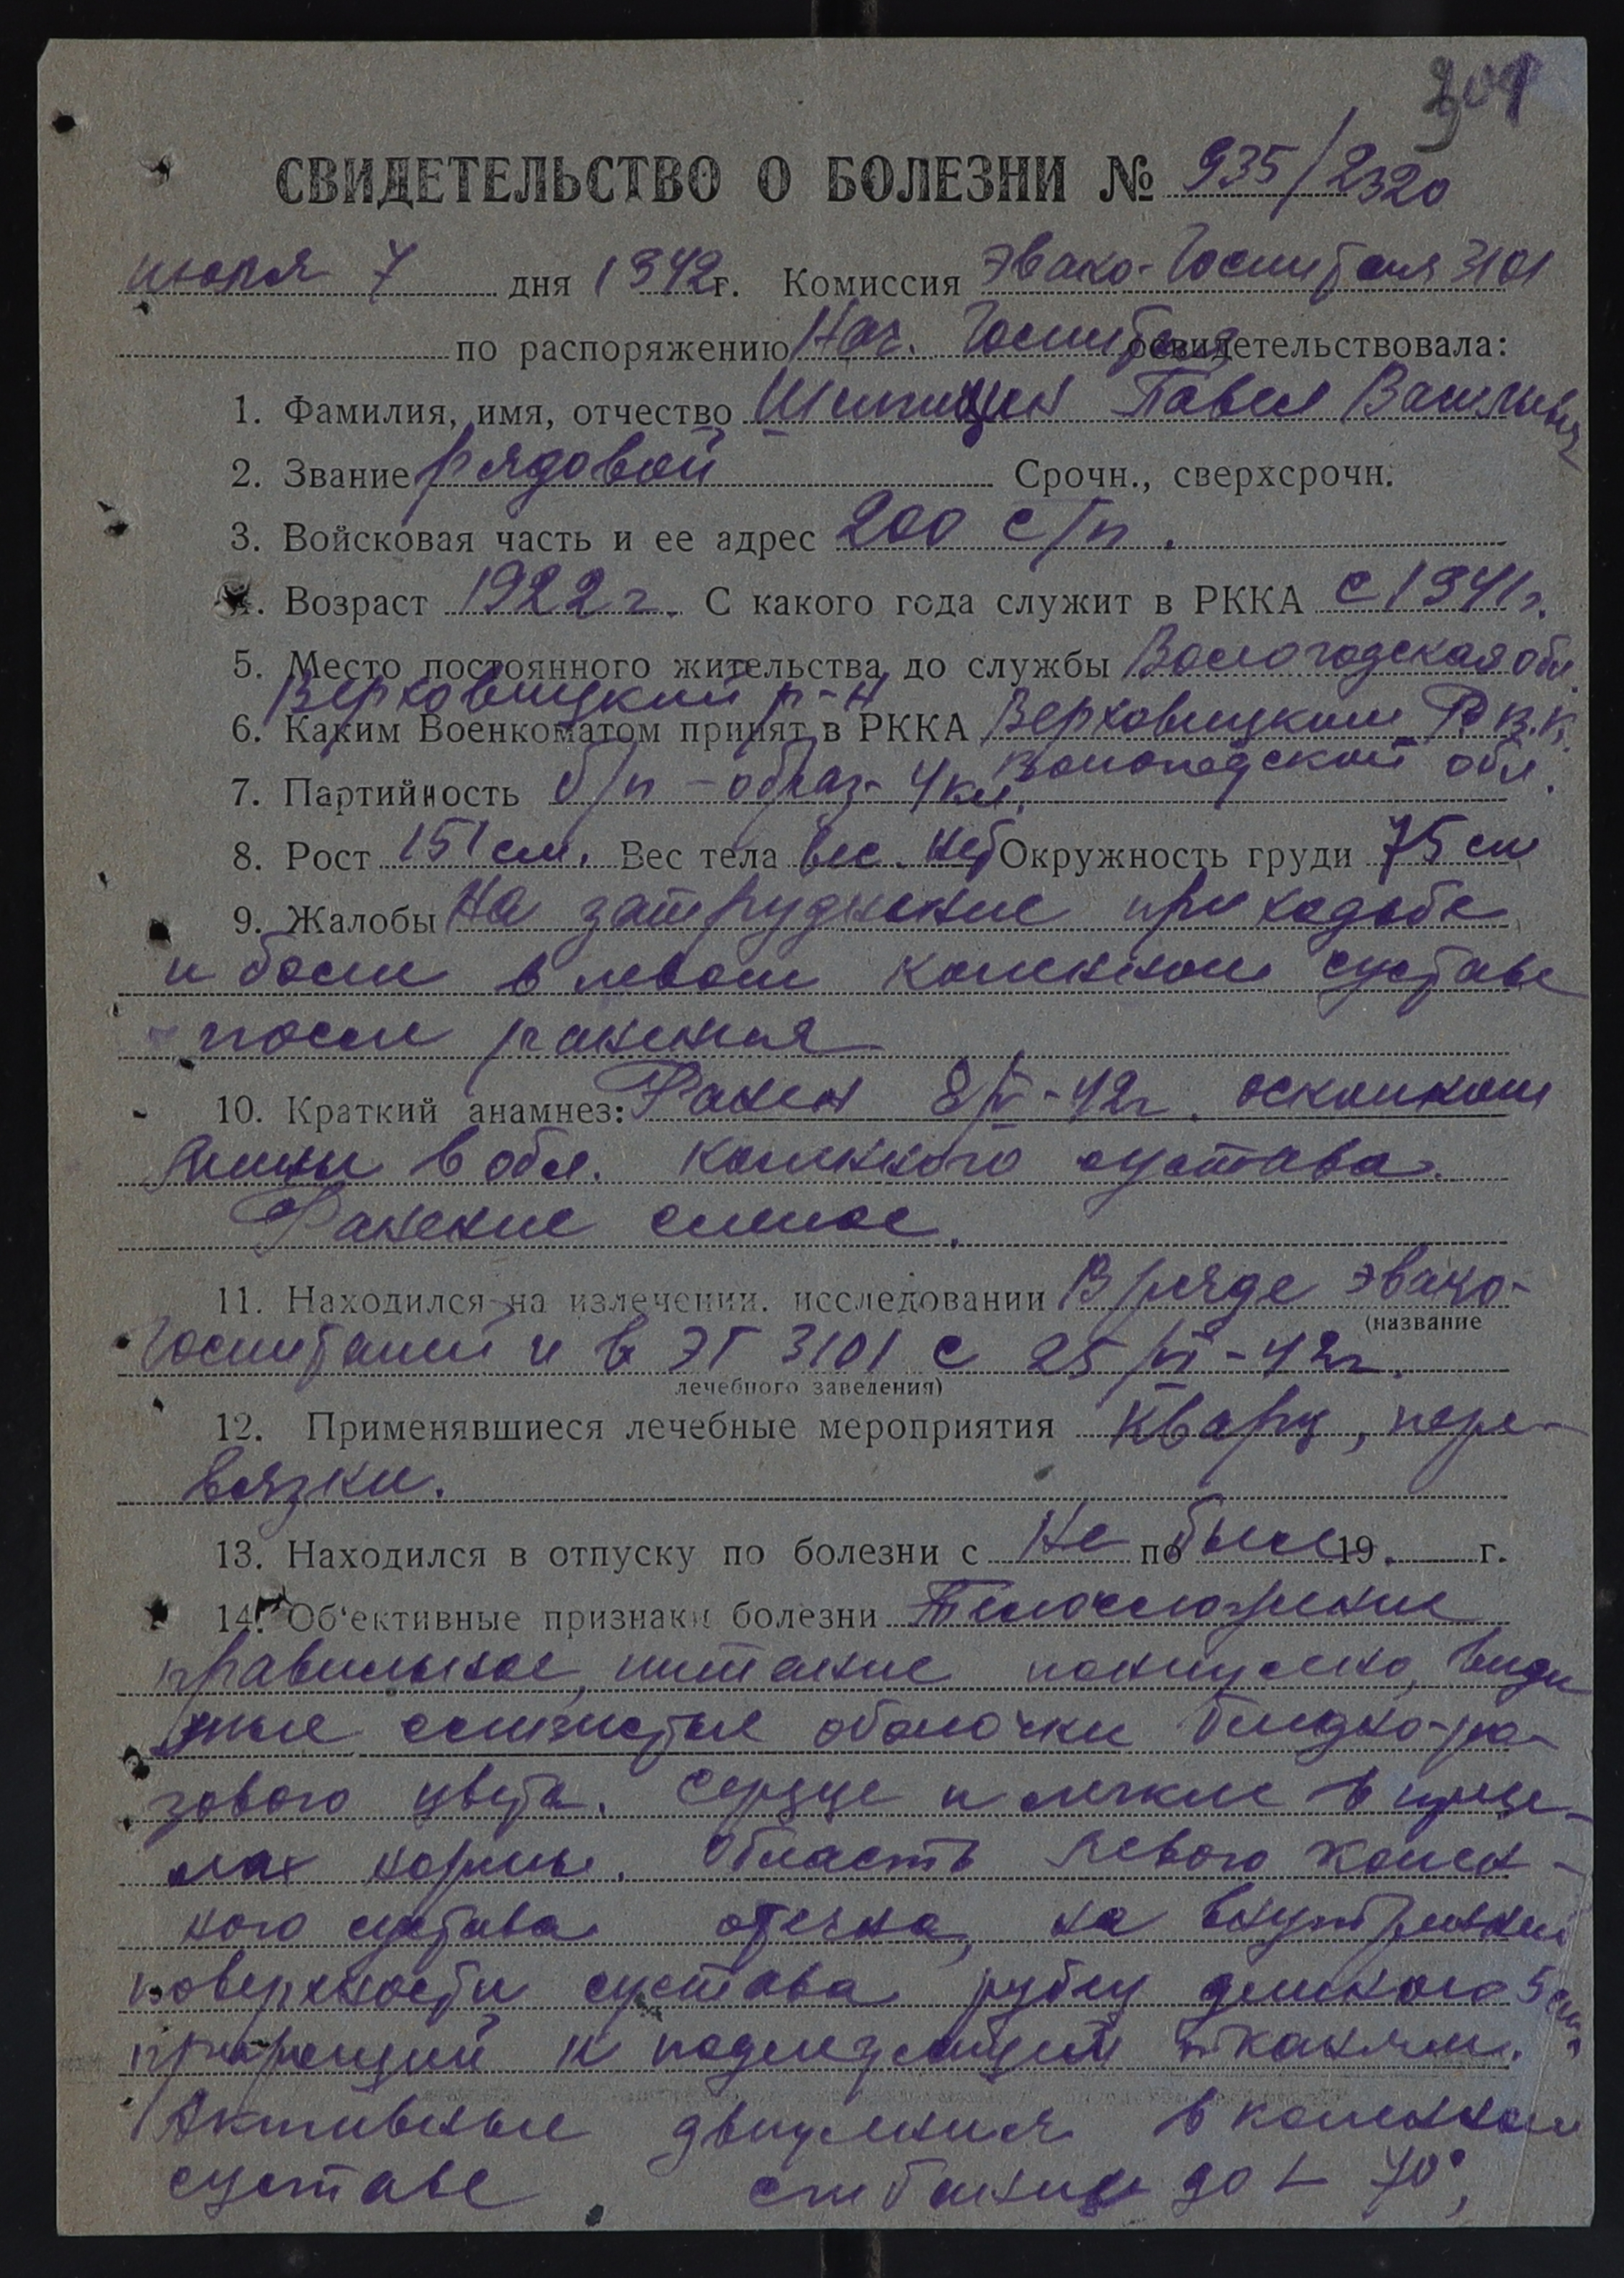 301
СВИДЕТЕЛЬСТВО О БОЛЕЗНИ № 935/2320
июля 7 дня 1942 г. Комиссия Эвако-Госпиталя 3101
по распоряжению Нач. Госпиталя освидетельствовала:
1. Фамилия, имя, отчество Шипицин Павел Васильевич
2. Звание рядовой Срочн., сверхсрочн.
3. Войсковая часть и ее адрес 200 с/п.
4. Возраст 1922 г. С какого года служит в РККА с 1941 г.
5. Место постоянного жительства до службы Вологодская обл.
Верховицкий р-н
6. Каким Военкоматом принят в РККА Верховицким Р.В.К.
Вологодской обл.
7. Партийность б/п - образ- 4 кл.
8. Рост 151 см. Вес тела вес. нет Окружность груди 75 см
9. Жалобы На затруднение при ходьбе
и боли в левом коленном суставе
после ранения
10. Краткий анамнез: Ранен 8/IV-42г. осколком
мины в обл. коленного сустава.
Ранение слепое.
11. Находился на излечении. исследовании В ряде эвако-
(название
Госпиталей и в ЭГ 3101 с 25/VI-42г.
лечебного заведения)
12. Применявшиеся лечебные мероприятия Кварц, пере-
вязки.
13. Находился в отпуску по болезни с Не по был 19 г.
14. Об'ективные признаки болезни Телосложение
правильное, питание понижено, види
мые слизистые оболочки бледно-ро-
зового цвета. Сердце и легкие в преде-
лах нормы. Область левого колен-
ного сустава отечна, на внутренней
поверхности сустава рубец длиною 5 см.
приросший к подлежащим тканям.
Активные движения в коленном
суставе сгибание до ∟ 70°,